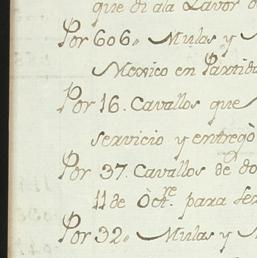 que di ala Lavor d
Por 606,, Mulas y
Mexico en Partid
Por 16. Cavallos que
servicio y entregò
Por 37. Cavallos de do
11 de Oct.re para se
Por 32,, Mulas y